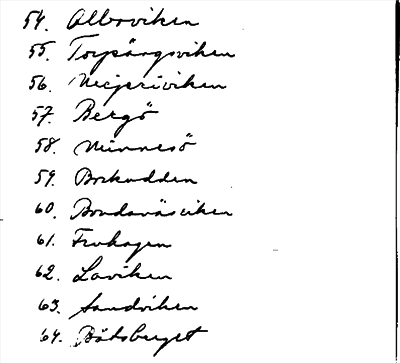 54. Alborviken
55. Torpängsviken
56. Mejeriviken
57. Bergö
58. Minnesö
59. Borkudden
60. Bondanäsviken
61. Fruhagen
62. Laviken
63. Sandviken
64. Båtsberget